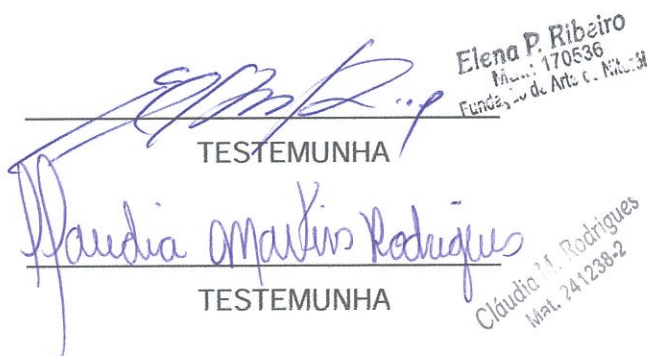 Elena P. Ribeiro
170536
de Arte
TESTEMUNHA
Claudia Martins Rodrigues
TESTEMUNHA
Cláudia M. Rodrigues
Mat. 241238-2